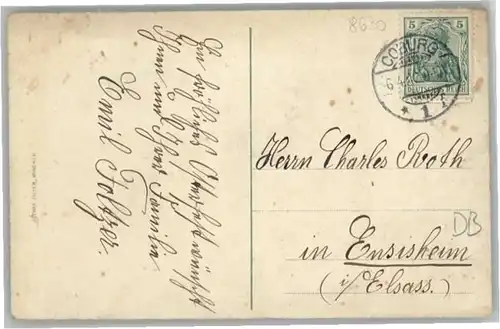 8630
5 5
DEUTSCHES REICH
COBURG
6.4.
* 1 f
Ein fröhliches Osterfest wünscht
Ihnen und Ihrer Familie
Emil Foltzer.
Herrn Charles Roth
in Ensisheim
(i/Elsass.)
DB